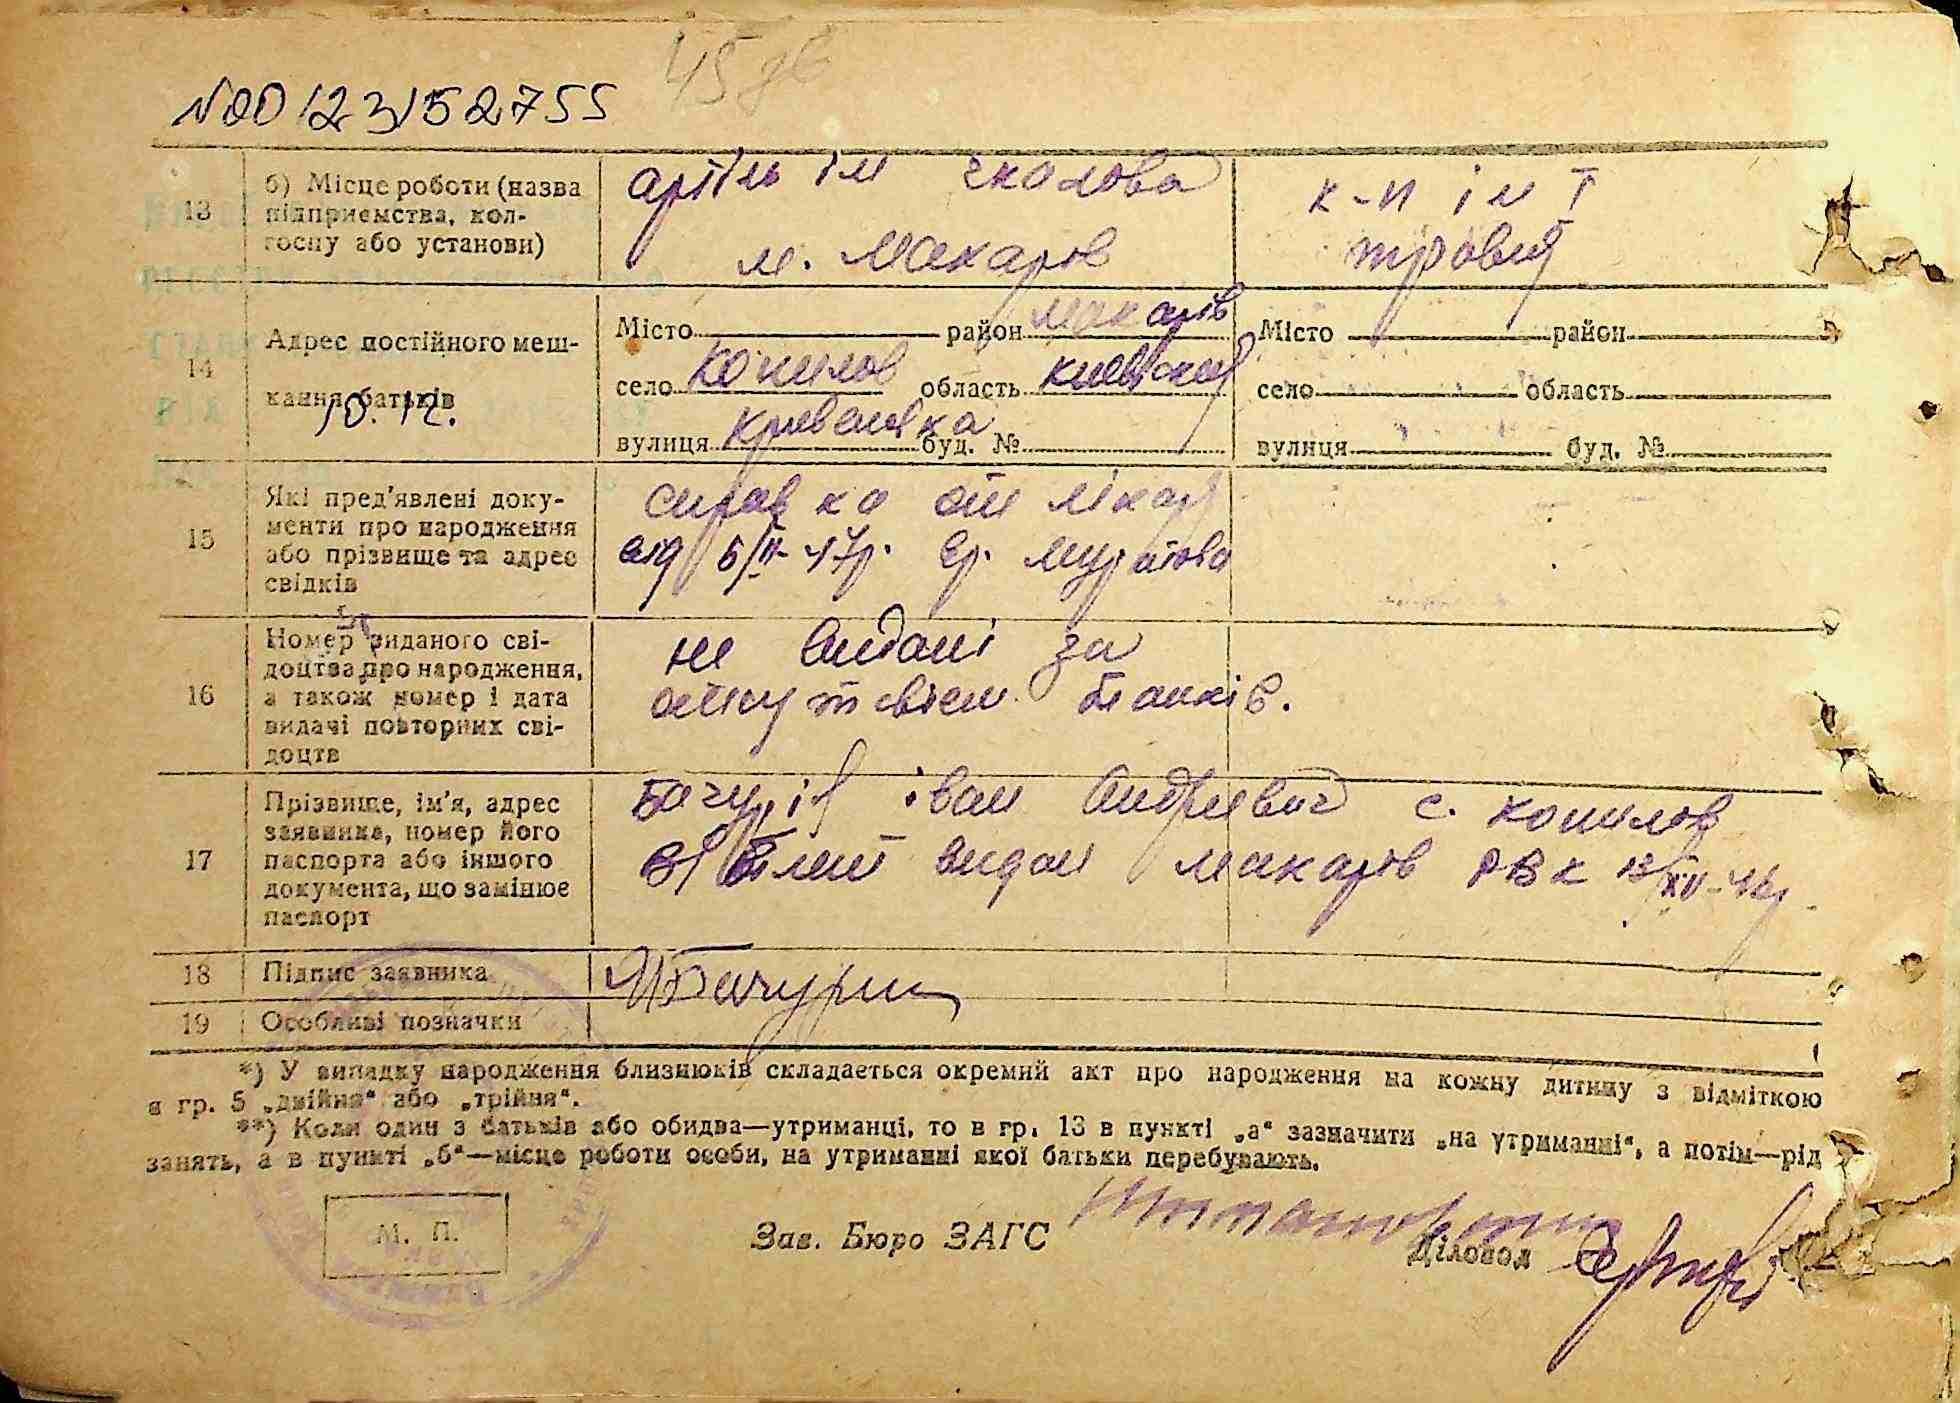 45 зв
N00123152755
13
б) Місце роботи (назва підприємства, колгоспу або установи)
артіль ім чкалова
м. Макаров
к-п ім 1
травня
14
Адрес постійного мешкання батьків
10.12.
Місто район макарів
село Копилов область київській
вулиця буд. №
Місто район
село область
вулиця буд. №
15
Які пред'явлені документи про народження або прізвище та адрес свідків
справка от лікаря
від 5/II-47р. вр. Муратова
16
Номер виданого свідоцтва про народження, а також номер і дата видачі повторних свідоцтв
не видані за
отсутствієм бланків.
17
Прізвище, ім'я, адрес заявника, номер його паспорта або іншого документа, що замінює паспорт
Бачурін іван Андрієвич с. копилов
в/білет видан макарів РВК
18
Підпис заявника
Бачурин
19
Особливі позначки
*) У випадку народження близнюків складається окремий акт про народження на кожну дитину з відміткою
в гр. 5 „двійня“ або „трійня“.
**) Коли один з батьків або обидва—утриманці, то в гр. 13 в пункті „а“ зазначити „на утриманні“, а потім—рід
занять, а в пункті „б“—місце роботи особи, на утриманні якої батьки перебувають.
М. П.
Зав. Бюро ЗАГС
Діловод